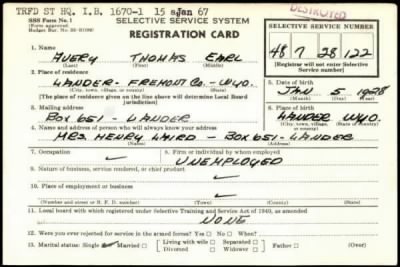 TRFD ST HQ. I.B. 1670-1 15 Jan 67
DESTROYED
SSS Form No. 1
SELECTIVE SERVICE SYSTEM
REGISTRATION CARD
SELECTIVE SERVICE NUMBER
48 7 28 122
(Registrar will not enter Selective Service number)
1. Name
AVERY THOMAS EARL
(Last) (First) (Middle)
2. Place of residence
LANDER - FREMONT CO. - WYO.
(City, town, village, or county) (State)
(The place of residence given on the line above will determine Local Board jurisdiction)
3. Mailing address
BOX 651 - LANDER
4. Name and address of person who will always know your address
MRS. HENRY LAIRD - BOX 651 - LANDER
5. Date of birth
JAN 5 1928
(Month) (Day) (Year)
6. Place of birth
LANDER WYO.
7. Occupation
8. Firm or individual by whom employed
UNEMPLOYED
9. Nature of business, service rendered, or chief product
10. Place of employment or business
(Number and street or R. F. D. number) (City, town, village, or county) (State)
11. Local board with which registered under Selective Training and Service Act of 1940, as amended:
NONE
12. Were you ever rejected for service in the armed forces? Yes No
13. Marital status: Single ✓ Married Living with wife Separated Divorced Widower Father (Over)